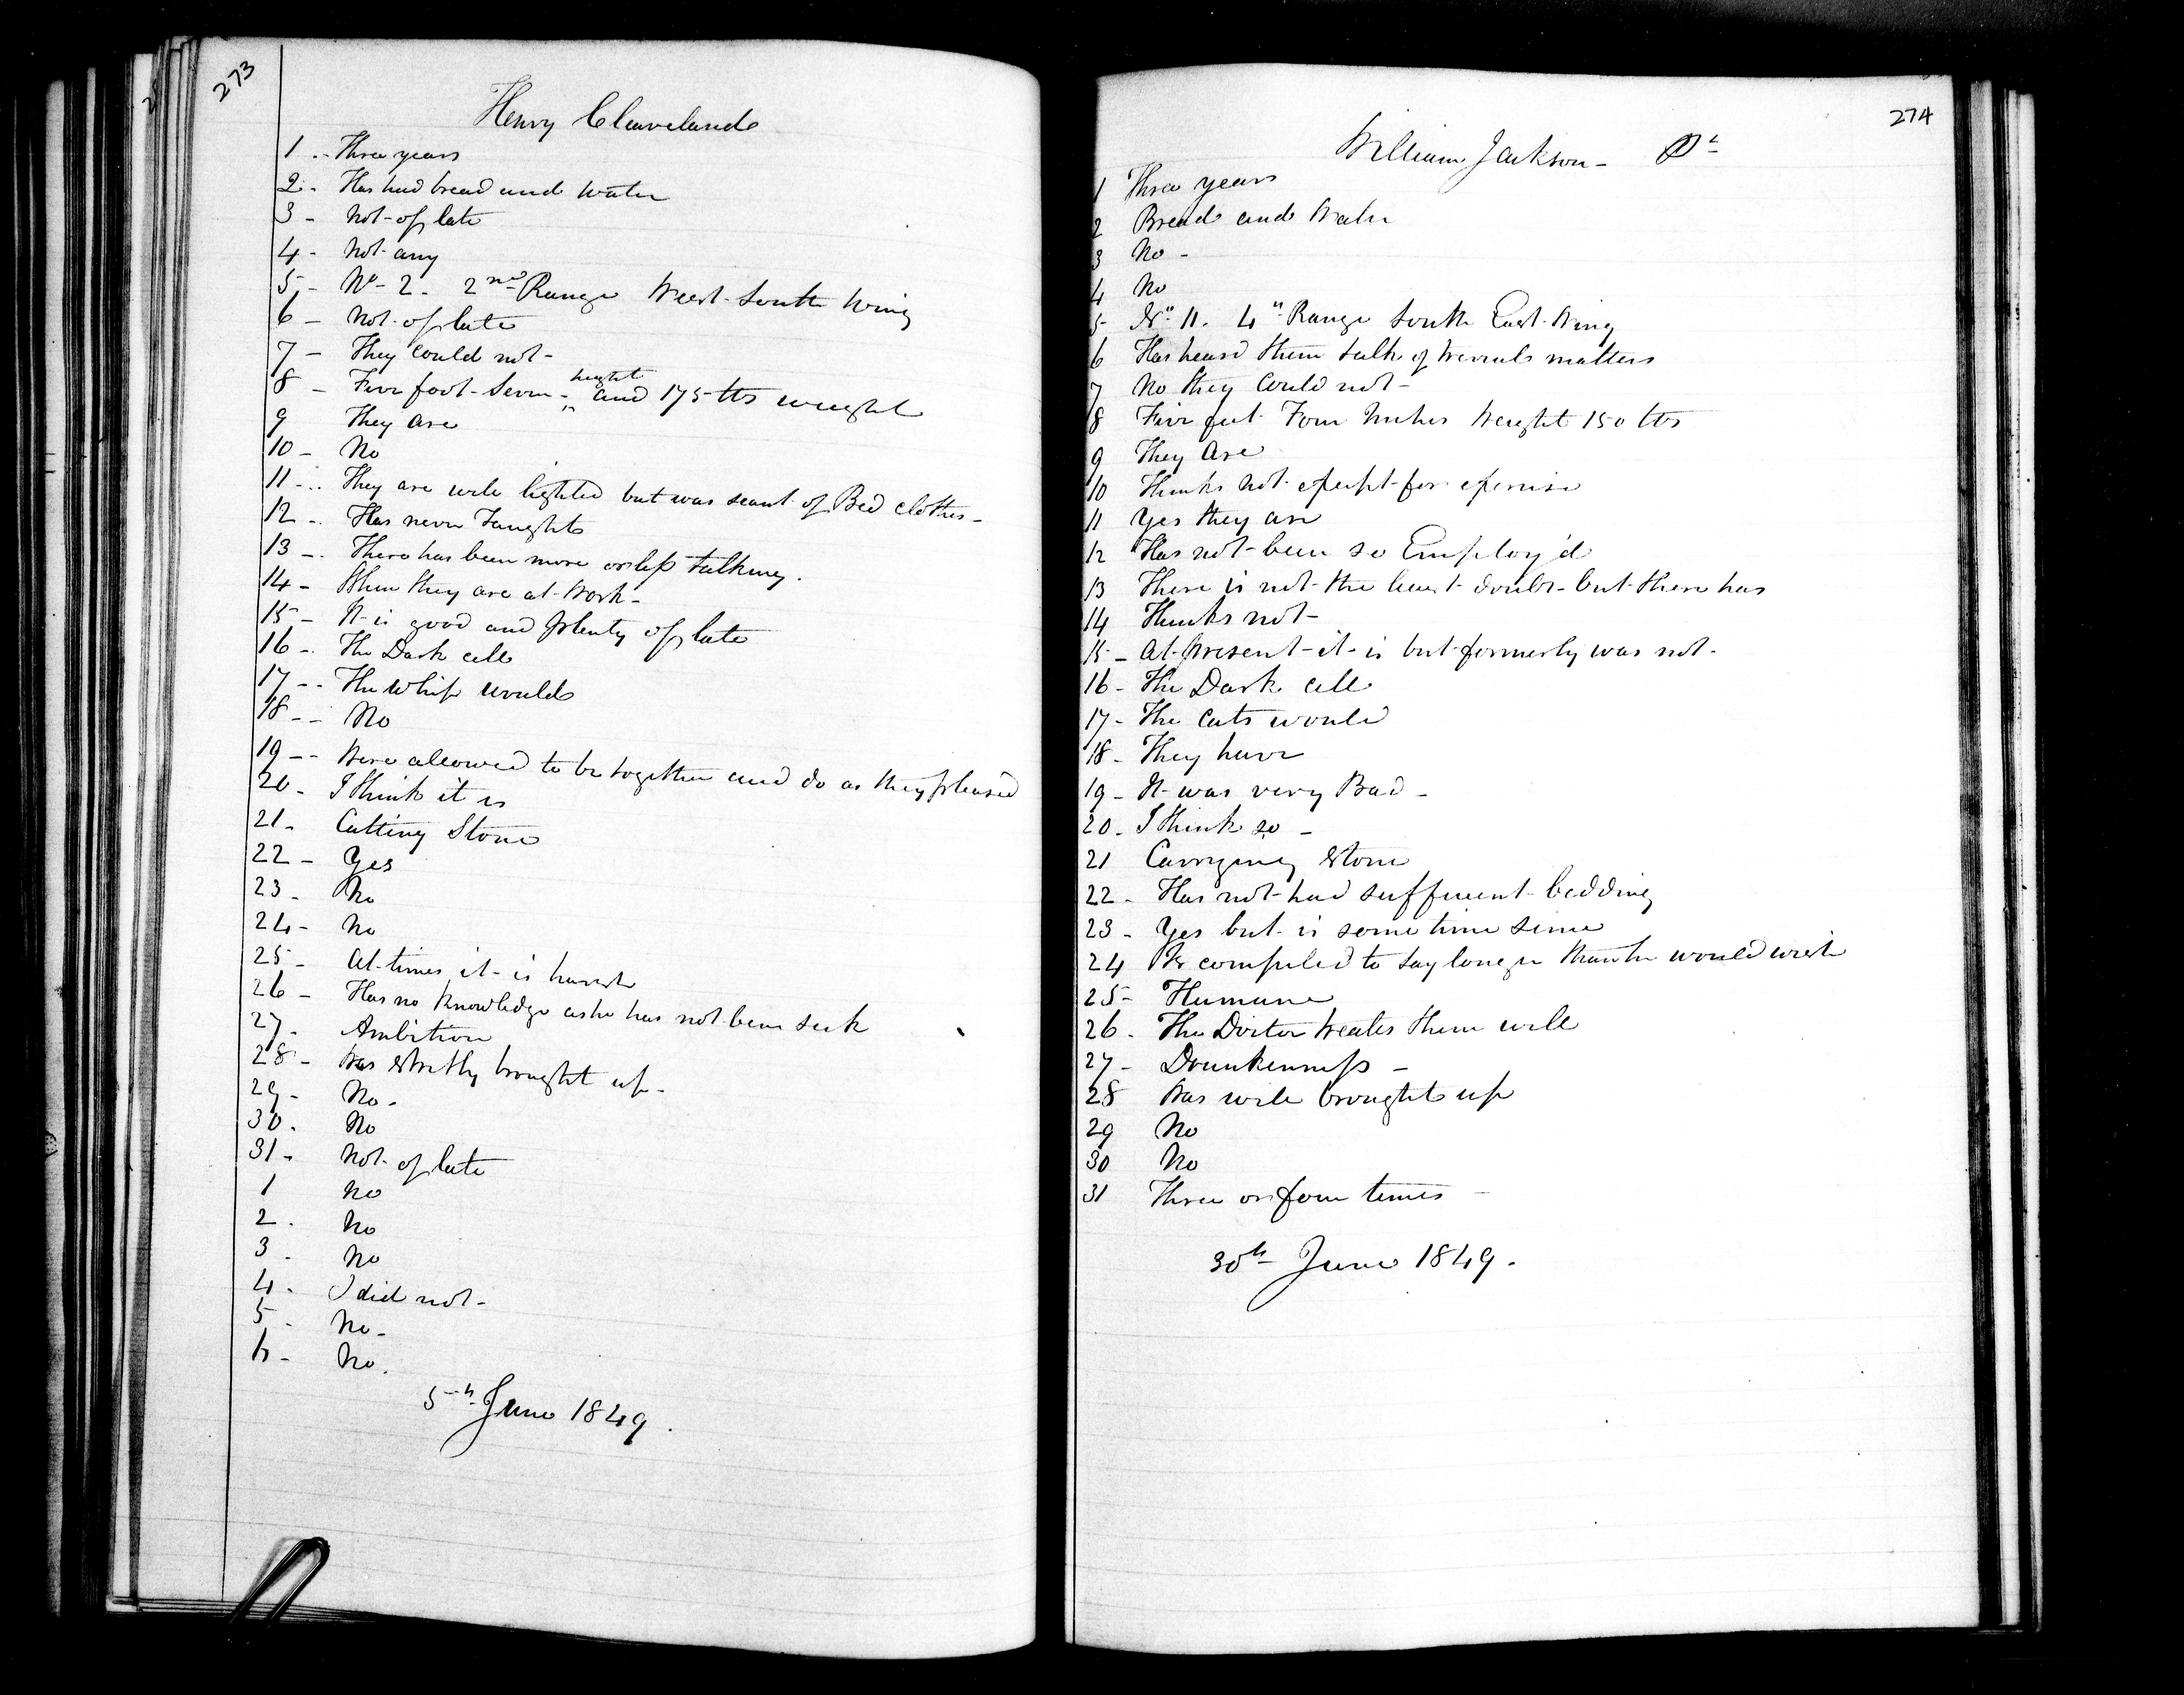 273
Henry Cleaveland
1 .. Three years
2 - Has had bread and water
3 - Not of late
4 - Not any
5 - No - 2 - 2nd Range West South Wing
6 - Not of late
7 - They could not -
8 - Five foot Seven - height and 175 lbs weight
9 They are
10 - No
11 - .. They are well lighted but was scant of Bed clothes -
12 - . Has never Taught
13 - . There has been more or less talking.
14 - When they are at Work -
15 - It is good and plenty of late
16 - . The Dark cell
17 - - The Whip would
18 - - No
19 - - Were allowed to be together and do as they pleased
20 - I think it is
21 - Cutting Stone
22 - Yes
23 - No
24 - No
25 - At times it is harsh
26 - Has no knowledge as he has not been sick
27 - Ambition
28 - Was strictly brought up -
29 - No -
30 . No
31 - Not of late
1 No
2 . No
3 - No
4 - I did not -
5 - No -
6 - No .
5th June 1849 .
274
William Jackson -
1 Three years
2 Bread and Water
3 No -
4 No
5 - No 11. 4th Range South East Wing
6 Has heard them talk of several matters
7 No they could not -
8 Five feet Four Inches Weight 150 lbs
9 They Are
10 Thinks not except for exercise
11 Yes they are
12 Has not been so Employ'd
13 There is not the least doubt but there has
14 Thinks not -
15 - At present it is but formerly was not -
16 - The Dark cell
17 - The Cats would
18 - They have
19 - It was very Bad -
20 - I think so -
21 Carrying stone
22 - Has not had sufficient bedding
23 - Yes but is some time since
24 Is compelled to say longer than he would wish
25 - Humane
26 . The Doctor treats them well
27 - Drunkenness -
28 Was well brought up
29 No
30 No
31 Three or four times -
30th June 1849 .